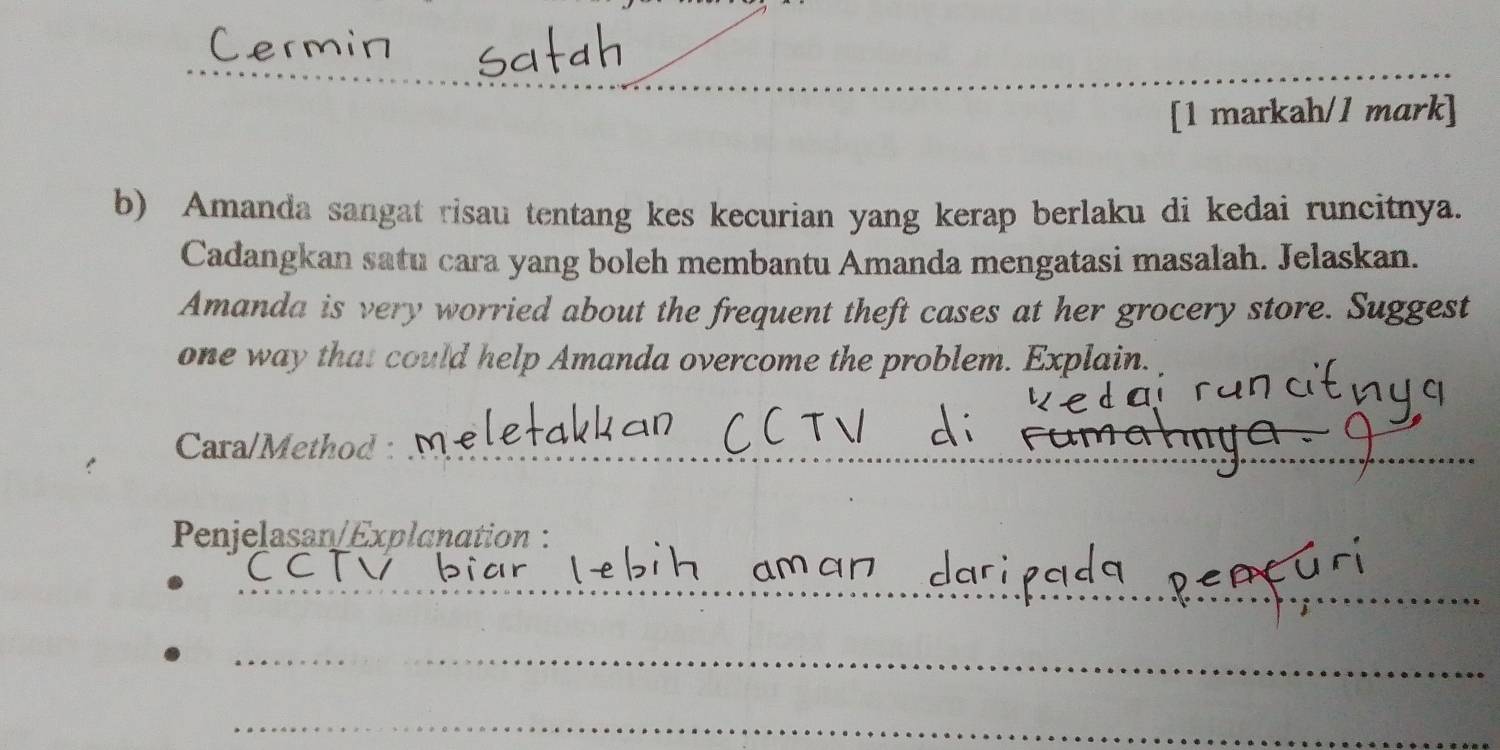 Cermin satah
[1 markah/1 mark]
b) Amanda sangat risau tentang kes kecurian yang kerap berlaku di kedai runcitnya.
Cadangkan satu cara yang boleh membantu Amanda mengatasi masalah. Jelaskan.
Amanda is very worried about the frequent theft cases at her grocery store. Suggest
one way that could help Amanda overcome the problem. Explain.
kedai runcitnya
Cara/Method : meletakkan CCTV di rumahnya.
Penjelasan/Explanation :
• CCTV biar lebih aman daripada pencuri
•